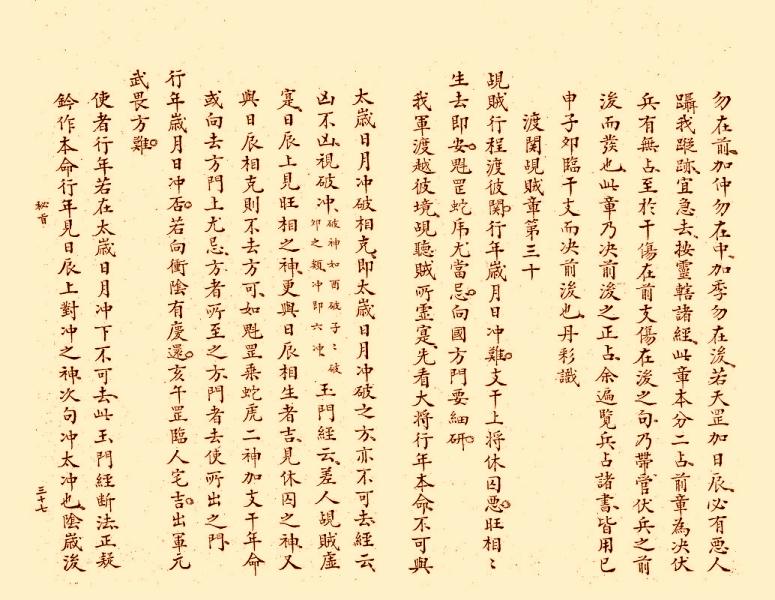 勿在前加仲勿在中加季勿在後若天罡加日辰必有惡人
躡我蹤跡宜急去按靈轄諸經此章本分二占前章為决伏
兵有無占至於干傷在前支傷在後之句乃帶管伏兵之前
後而發也此章乃决前後之正占余遍覽兵占諸書皆用巳
申子夘臨干支而决前後也丹彩識
渡関覘賊章第三十
覘賊行程渡彼関行年歲月日冲難支干上將休囚惡旺相〻
生去即安魁罡蛇虎尤當忌向國方門要細研
我軍渡越彼境覘聽賊所虛寔先看大将行年本命不可與
太歲日月冲破相克即太歲日月冲破之方亦不可去經云
凶不凶視破冲破神如酉破子〻破夘之類冲即六冲玉門經云差人覘賊虛
寔日辰上見旺相之神更與日辰相生者吉見休囚之神又
與日辰相克則不去方可如魁罡乘蛇虎二神加支干年命
或向去方門上尤忌方者所至之方門者去使所出之門
行年歲月日冲否若向衝陰有慶還亥午罡臨人宅吉出軍元
武畏方難
使者行年若在太歲日月冲下不可去此玉門經断法正疑
鈐作本命行年見日辰上對冲之神次句冲太冲也陰歲後
秘旨
三十七